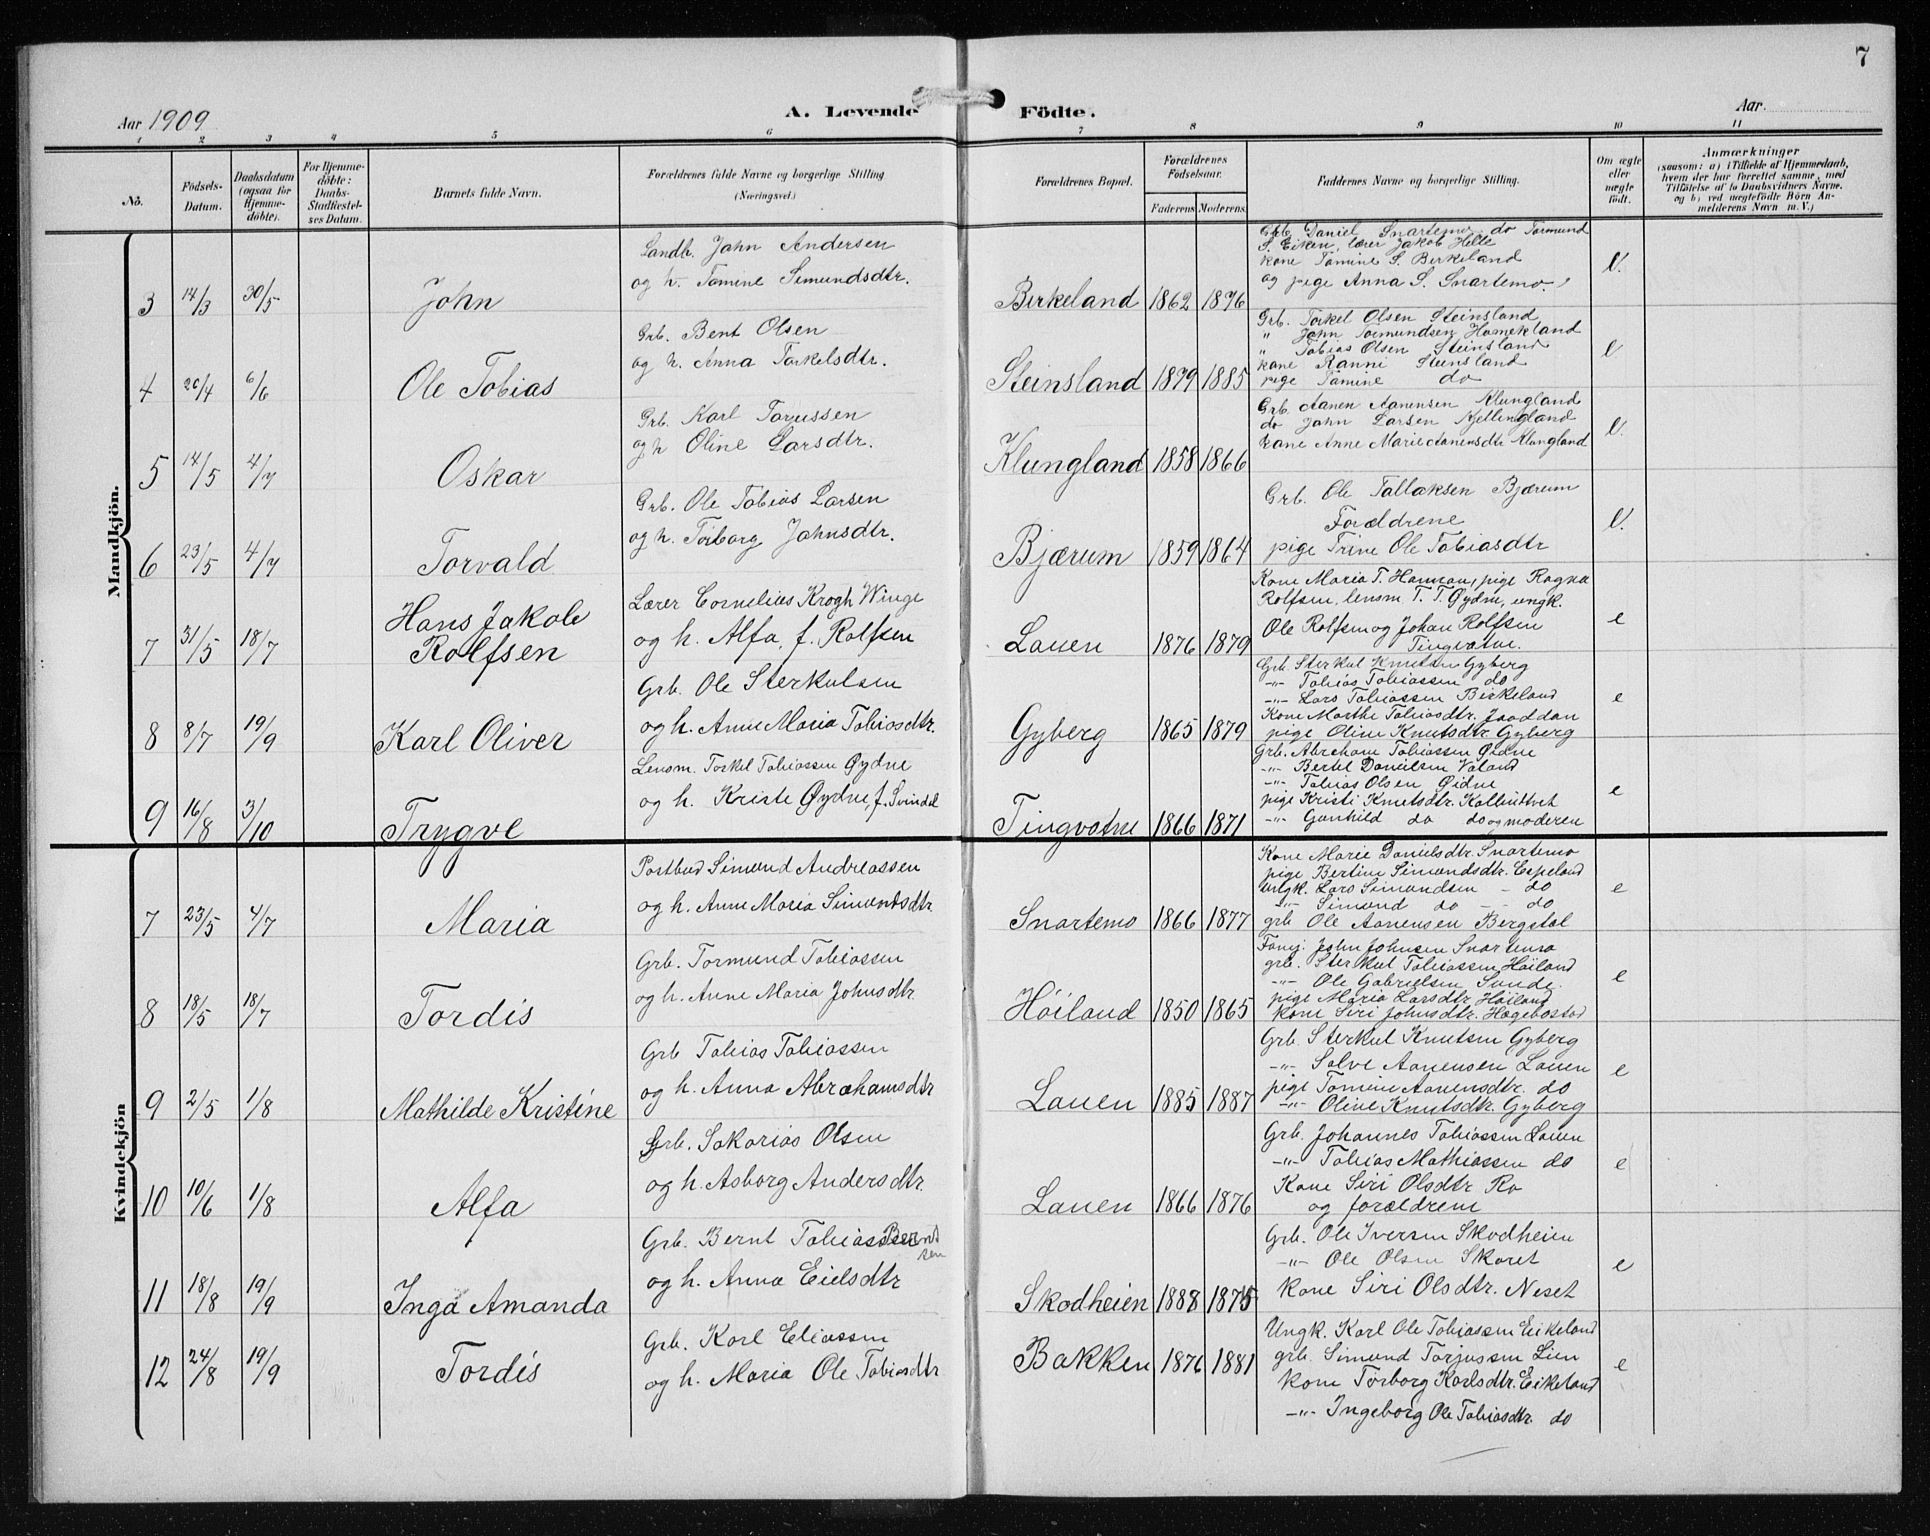 7
Aar 1909
A. Levende Födte.
Aar
1 2 3 4 5 6 7 8 9 10 11
No.
Födsels-Datum.
Daabsdatum (ogsaa for Hjemmedöbte).
For Hjemmedöbte: Daabs-Stadfæstelses Datum.
Barnets fulde Navn.
Forældrenes fulde Navne og borgerlige Stilling (Næringsvei.)
Forældrenes Bopæl.
Forældrenes Födselsaar.
Faderens Moderens
Faddernes Navne og borgerlige Stilling.
Om ægte eller uægte födt.
Anmærkninger
(saasom: a) i Tilfælde af Hjemmedaab, hvem der har forrettet samme, med Tilföielse af to Daabsvidners Navne, og b) ved uægtefödte Börn Anmelderens Navn m. V.)
Mandkjön.
3 14/3 30/5 John
Landh. Jahn Andersen
og h. Tomine Simundsdtr.
Birkeland 1862 1876
Grb. Daniel Snartemo do Tormund
S. Eiken, lærer Jakob Helle
kone Tomine S. Birkeland
og pige Anna S. Snartemo.
4 20/4 6/6 Ole Tobias
Grb. Bent Olsen
og h. Anna Torkelsdtr.
Steinsland 1879 1885
Grb. Torkel Olsen Steinsland
" John Tormundsen Homekland
" Tobias Olsen Steinsland
kone Ranni Steinsland
pige Tomine do
e
5 14/5 4/7 Oskar
Grb. Karl Torjussen
og h Oline Larsdtr.
Klungland 1858 1866
Grb. Aanen Aanensen Klungland
do John Larsen Kjellingland
kone Anne Marie Aanensdtr Klungland
6 23/5 4/7 Torvald
Grb. Ole Tobias Larsen
og h. Torborg Jahnsdtr.
Bjærum 1859 1864
Grb. Ole Tallaksen Bjærum
Forældrene
pige Trine Ole Tobiasdtr
7 31/5 18/7 Hans Jakob
Rolfsen
Lærer Cornelius Krogh Winge
og h. Alfa, f. Rolfsen
Lauen 1876 1879
Kone Maria T. Homran, pige Ragna
Rolfsen, lensm. T. T. Øydne, ungk.
Ole Rolfsen og Johan Rolfsen
Tingvatne.
e
8 8/7 19/9 Karl Oliver
Grb. Ole Sterkulsen
og h. Anne Maria Tobiasdtr.
Gyberg 1865 1879
Grb Sterkul Knutsen Gyberg
-"- Tobias Tobiassen do
-"- Lars Tobiassen Birkeland
Kone Marthe Tobiasdtr.
pige Oline Knutsdtr. Gyberg
e
9 16/8 3/10 Trygve
Lensm. Torkel Tobiassen Øydne
og h. Kriste Øydne, f. Svindal
Tingvatne 1866 1871
Grb. Abraham Tobiassen Øidne
-"- Bertel Danielsen Valand
-"- Tobias Olsen Øidne
pige Kristi Knutsdtr.
-"- Gunhild do do og moderen
e
Kvindekjön
7 23/5 4/7 Maria
Postbud Simund Andreassen
og h. Anne Maria Simontsdtr
Snartemo 1866 1877
Kone Marie Danielsdtr. Snartemo
pige Bertine Simundsdtr. Espeland
ungk. Lars Simundsen - do
-"- Simund do - - do
grb Ole Aanensen Bergstøl
e
8 18/5 18/7 Tordis
Grb. Tormund Tobiassen
og h. Anne Maria Johnsdtr.
Höiland 1850 1865
Forvj. John Johnsen Snartemo
grb. Sterkul Tobiassen Höiland
-"- Ole Gabrielsen Sunde.
pige Maria Larsdtr Höiland
kone Siri Johnsdtr. Hægebostad
e
9 2/5 1/8 Mathilde Kristine
Grb Tobias Tobiassen
og h. Anna Abrahamsdtr
Lauen 1885 1887
Grb. Sterkul Knutsen Gyberg
-"- Salve Aanensen Lauen
pige Tomine Aanensdtr. do
-"- Oline Knutsdtr. Gyberg
e
10 10/6 1/8 Alfa
Grb. Sakarias Olsen
og h. Asborg Andersdtr.
Lauen 1866 1876
Grb. Johannes Tobiassen Lauen
-"- Tobias Mathiassen do
Kone Siri Olsdtr Ro
og forældrene
e
11 18/8 19/9 Inga Amanda
Grb. Bernt Tobias Berndsen
og h. Anna Eielsdtr
Skodheien 1888
Grb. Ole Iversen Skodheien
-"- Ole Olsen Skaret
kone Siri Olsdtr. Neset
e
12 24/8 19/9 Tordis
Grb. Karl Eliassen
og h. Maria Ole Tobiasdtr
Bakken 1876 1881
Ungk. Karl Ole Tobiassen Eikeland
grb. Simund Torjussen Lien
kone Torborg Karlsdtr. Eikeland
-"- Ingeborg Ole Tobiasdtr do
e